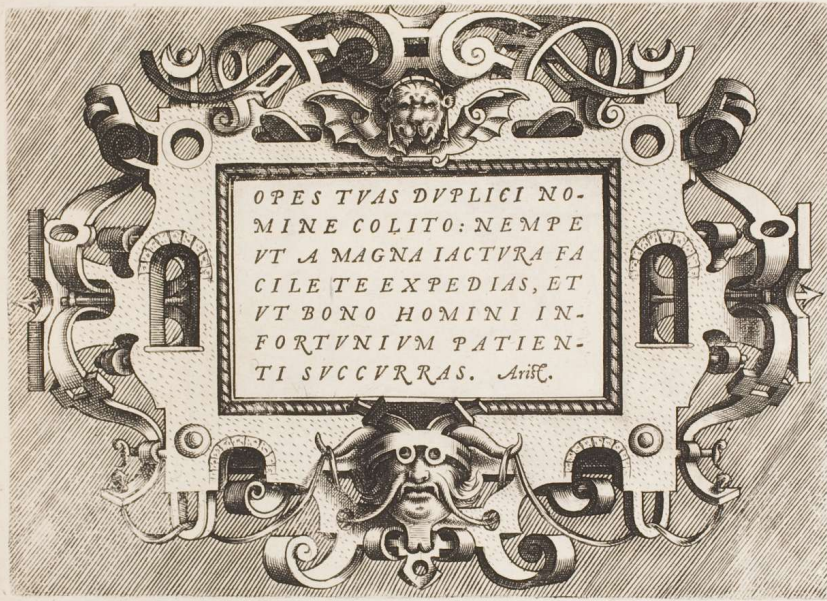 OPES TVAS DVPLICI NO-
MINE COLITO: NEMPE
VT A MAGNA IACTVRA FA
CILE TE EXPEDIAS, ET
VT BONO HOMINI IN-
FORTVNIVM PATIEN-
TI SVCCVRRAS. Arist.